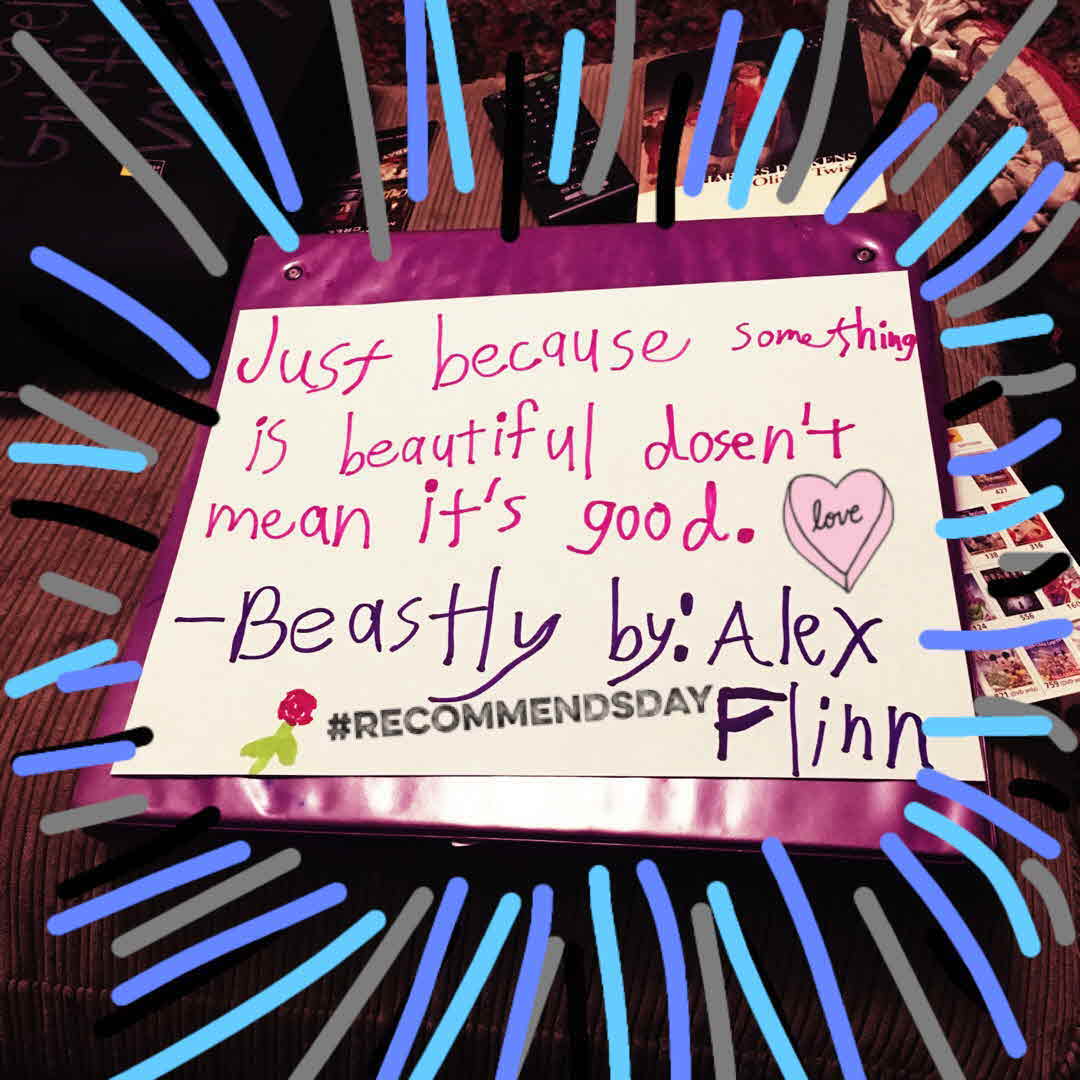 SONY
CHARLES DICKENS
Oliver Twist
Just because something
is beautiful dosen't
mean it's good.
love
-Beastly by: Alex
Flinn
#RECOMMENDSDAY
427
138
316
556
160
124
821 (DVD only)
759 (DVD only)